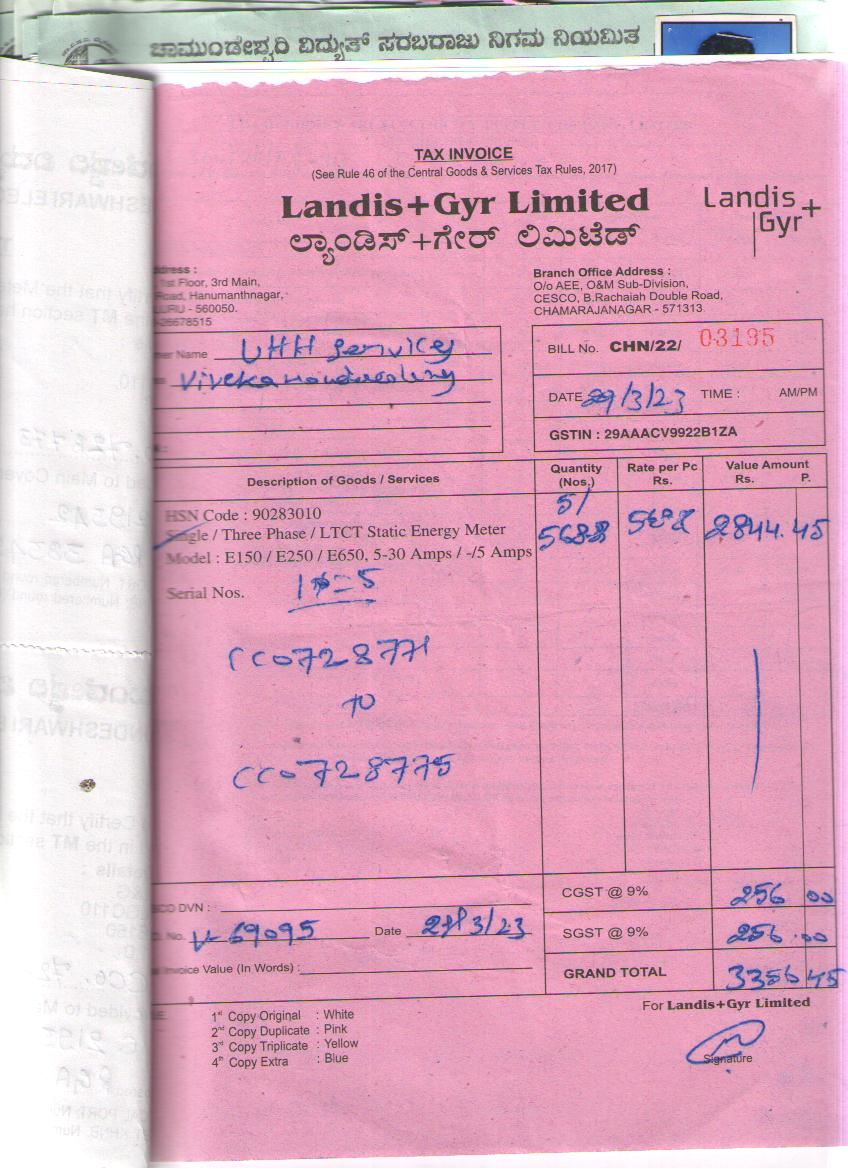 ಚಾಮುಂಡೇಶ್ವರಿ ವಿದ್ಯುತ್ ಸರಬರಾಜು ನಿಗಮ ನಿಯಮಿತ
TAX INVOICE
(See Rule 46 of the Central Goods & Services Tax Rules, 2017)
Landis+Gyr Limited
Landis+
Gyr
ಲ್ಯಾಂಡಿಸ್+ಗೇರ್ ಲಿಮಿಟೆಡ್
1st Floor, 3rd Main,
Road, Hanumanthnagar,
- 560050.
26678515
Branch Office Address :
O/o AEE, O&M Sub-Division,
CESCO, B.Rachaiah Double Road,
CHAMARAJANAGAR - 571313.
Name
BILL No. CHN/22/ 03195
DATE 29/3/23 TIME : AM/PM
GSTIN : 29AAACV9922B1ZA
Description of Goods / Services
Quantity (Nos.)
Rate per Pc Rs.
Value Amount Rs. P.
HSN Code : 90283010
Single / Three Phase / LTCT Static Energy Meter
Model : E150 / E250 / E650, 5-30 Amps / -/5 Amps
5/
2844.45
Serial Nos.
CC0728771
to
CC0728775
CGST @ 9% 256 00
DVN :
No. 69095 Date 27/3/23
SGST @ 9% 256.00
Invoice Value (In Words) :
GRAND TOTAL 3356 45
For Landis+Gyr Limited
1st Copy Original : White
2nd Copy Duplicate : Pink
3rd Copy Triplicate : Yellow
4th Copy Extra : Blue
Signature